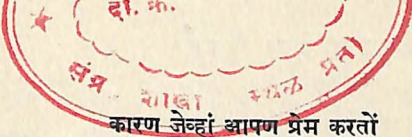 दा. क्र.
संग्र शाखा स्थळ प्रत
कारण जेव्हां आपण प्रेम करतों